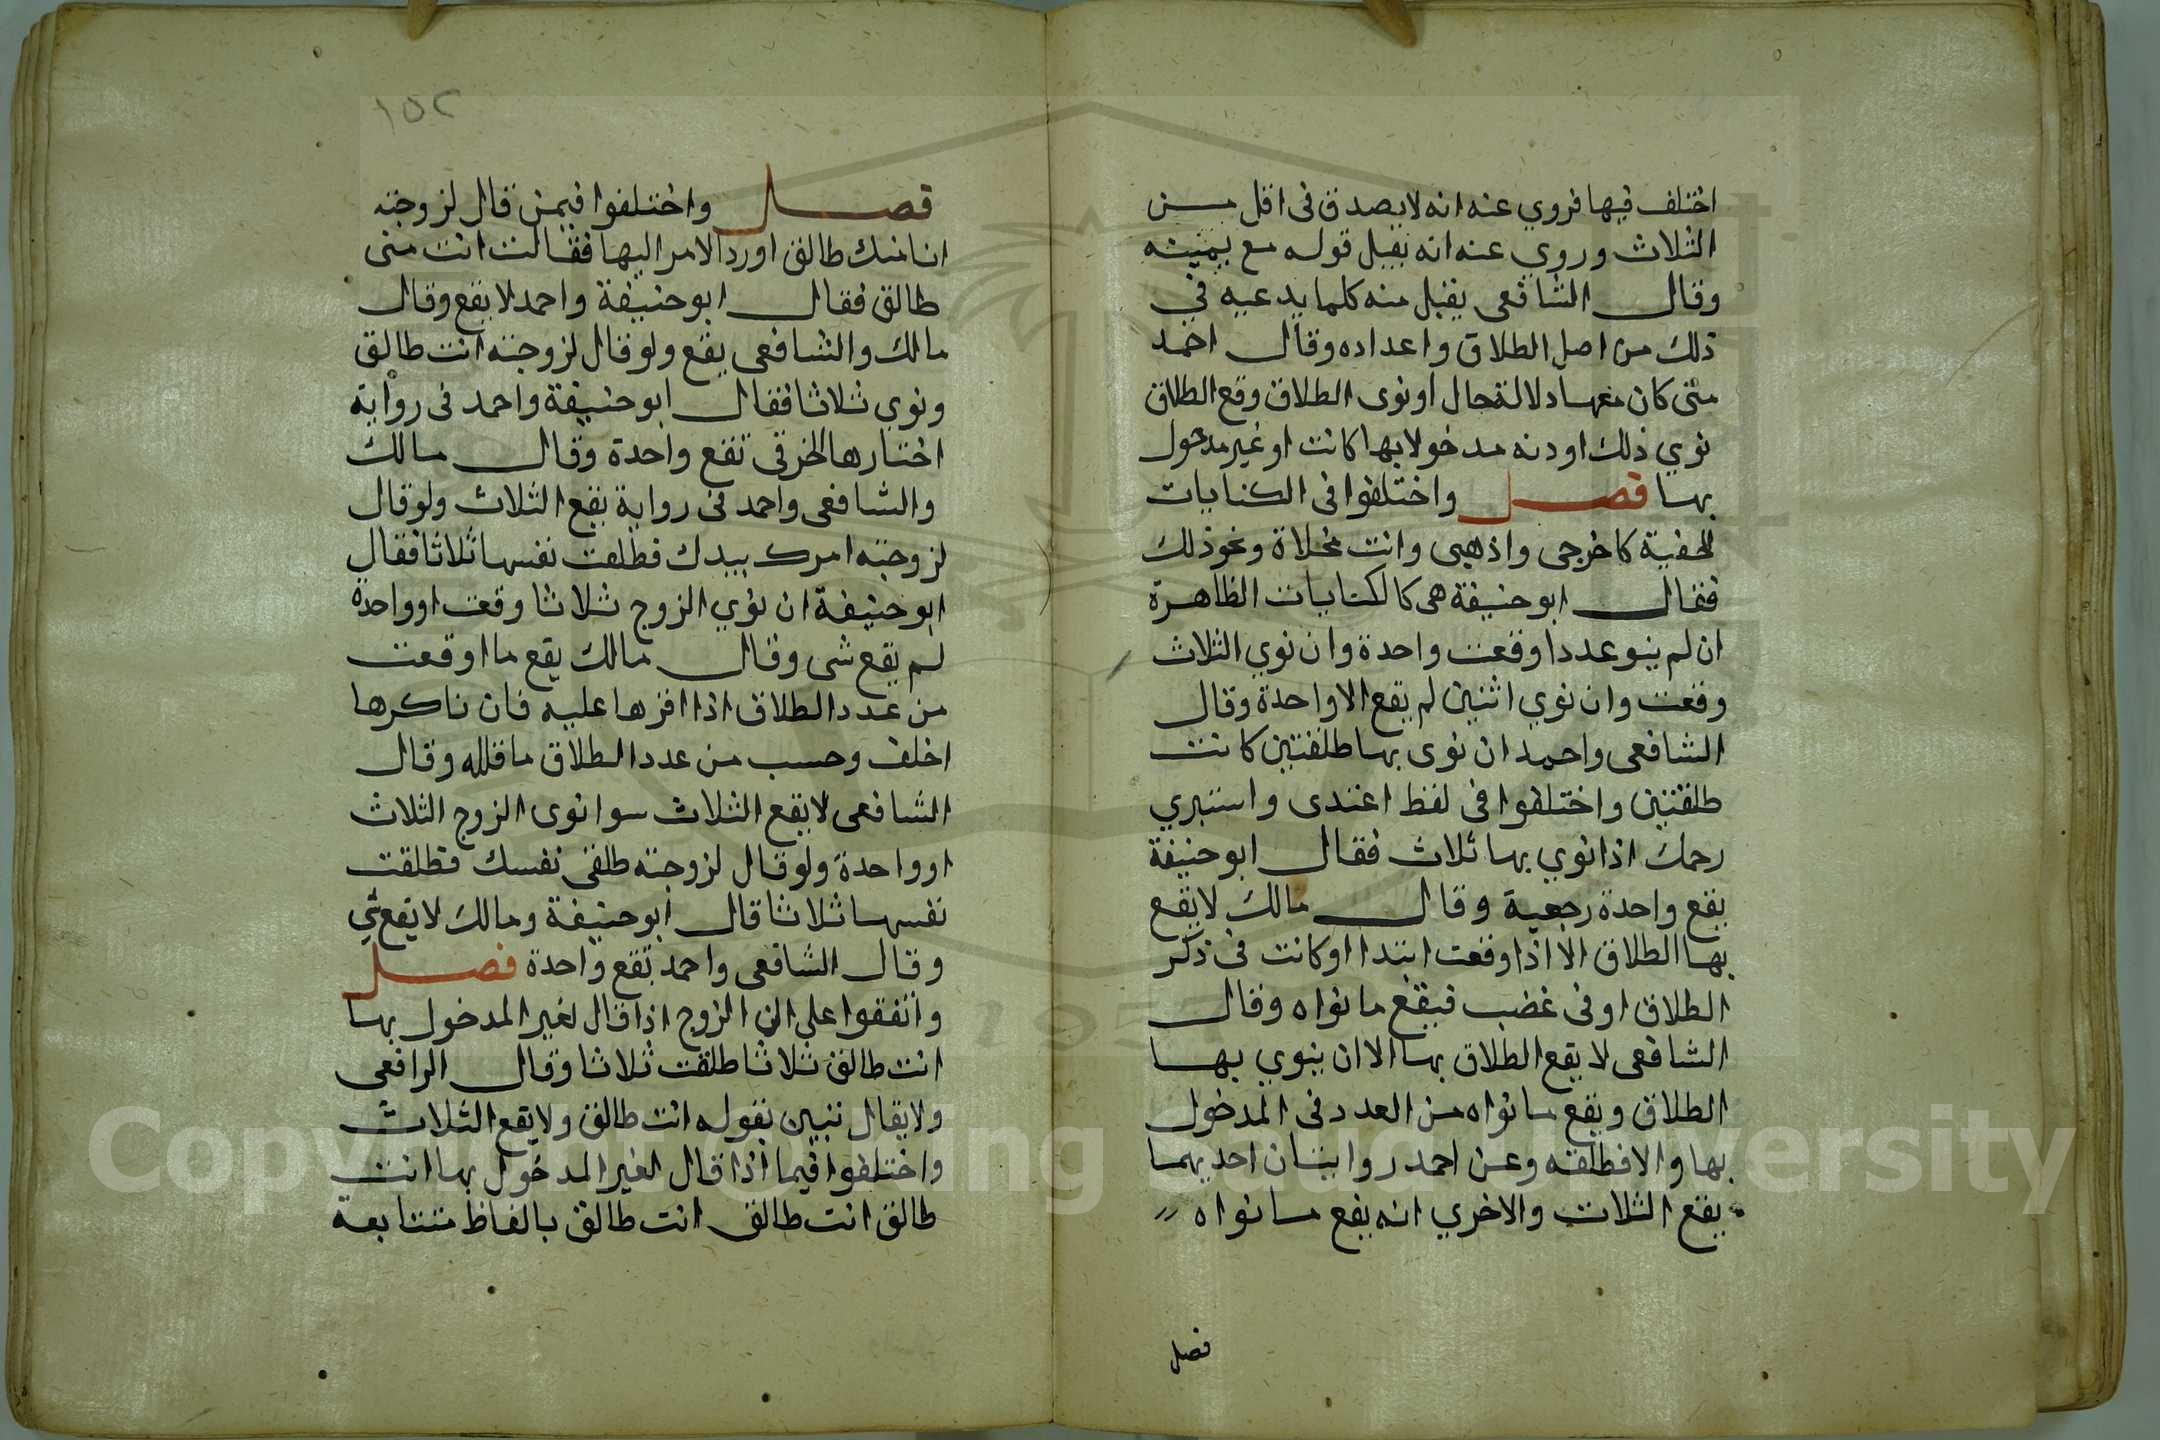 اختلف فيها فروي عنه انه لا يصدق في اقل مــن
الثلاث وروي عنه انه يقبل قوله مع يمينه
وقال الشافعي يقبل منه كلما يدعيه في
ذلك من اصل الطلاق واعداده وقال احمد
متى كان معها دلالة حال او نوى الطلاق وقع الطلاق
نوي ذلك او دنه مدخولا بها كانت او غير مدخول
بها فصل واختلفوا في الكنايات
الخفية كاخرجي واذهبي وانت مخلاة ونحو ذلك
فقال ابو حنيفة هي كالكنايات الظاهرة
ان لم ينو عددا وقعت واحدة وان نوي الثلاث
وقعت وان نوي اثنين لم يقع الا واحدة وقال
الشافعي واحمد ان نوى بها طلقتين كانت
طلقتين واختلفوا في لفظ اعتدى واستبري
رحمك اذا نوي بها ثلاث فقال ابو حنيفة
يقع واحدة رجعية وقال مالك لا يقع
بها الطلاق الا اذا وقعت ابتدا او كانت في ذكر
الطلاق او في غضب فيقع ما نواه وقال
الشافعي لا يقع الطلاق بها الا ان ينوي بها
الطلاق ويقع ما نواه من العدد في المدخول
بها والا فطلقه وعن احمد روايتان احديهما
يقع الثلاث والاخري انه يقع ما نواه
فصل
١٥٢
فصل واختلفوا فيمن قال لزوجته
انا منك طالق او رد الامر اليها فقالت انت مني
طالق فقال ابو حنيفة واحمد لا يقع وقال
مالك والشافعي يقع ولو قال لزوجته انت طالق
ونوي ثلاثا فقال ابو حنيفة واحمد في رواية
اختارها الخرقي تقع واحدة وقال مالك
والشافعي واحمد في رواية يقع الثلاث ولو قال
لزوجته امرك بيدك فطلقت نفسها ثلاثا فقال
ابو حنيفة ان نوي الزوج ثلاثا وقعت او واحدة
لم يقع شي وقال مالك يقع ما اوقعت
من عدد الطلاق اذا اقرها عليه فان ناكرها
احلف وحسب من عدد الطلاق ما قلله وقال
الشافعي لا يقع الثلاث سوا نوى الزوج الثلاث
او واحدة ولو قال لزوجته طلقي نفسك فطلقت
نفسها ثلاثا قال ابو حنيفة ومالك لا يقع شي
وقال الشافعي واحمد تقع واحدة فصل
واتفقوا على ان الزوج اذا قال لغير المدخول بها
انت طالق ثلاثا طلقت ثلاثا وقال الرافعي
ولا يقال تبين بقوله انت طالق ولا يقع الثلاث
واختلفوا فيما اذا قال لغير المدخول بها انت
طالق انت طالق انت طالق بالفاظ متتابعة
Copyright © King Saud University